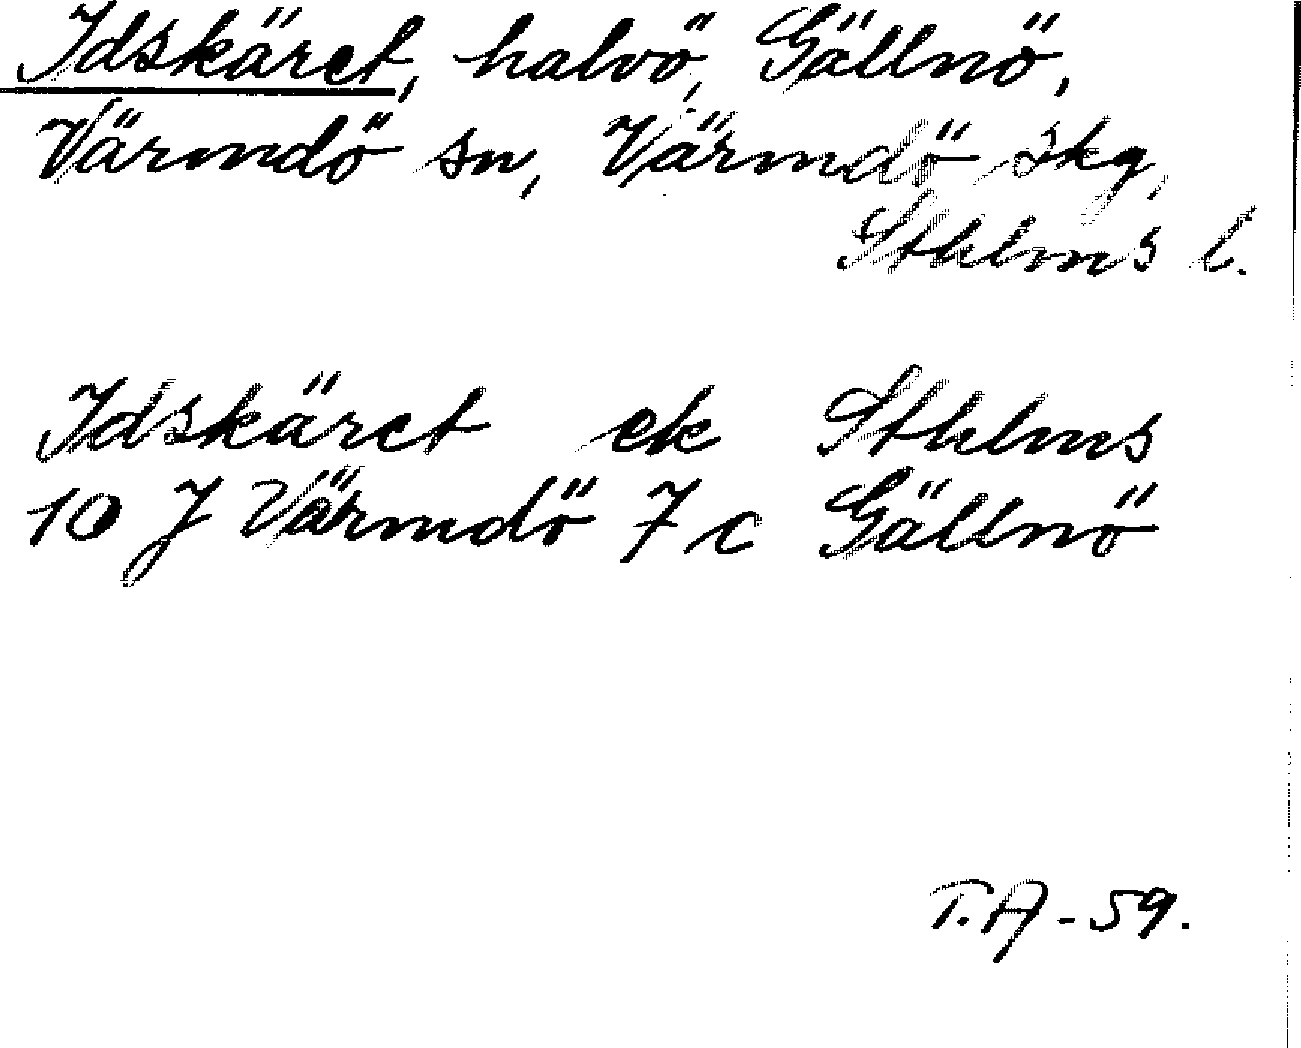 Idskäret, halvö, Gällnö,
Värmdö sn, Värmdö skg,
Sthlms l.
Idskäret ek Sthlms
10 J Värmdö 7 c Gällnö
T.A - 59.